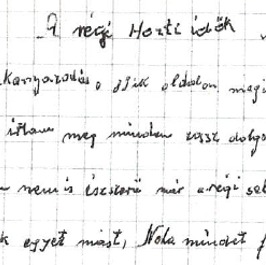 A régi Horti idők
Kanyarodás a djik oldalon megi
itlam meg minden rossz dolgo
nem is észszerű már a régi
k egyet mást, Nola mindet f